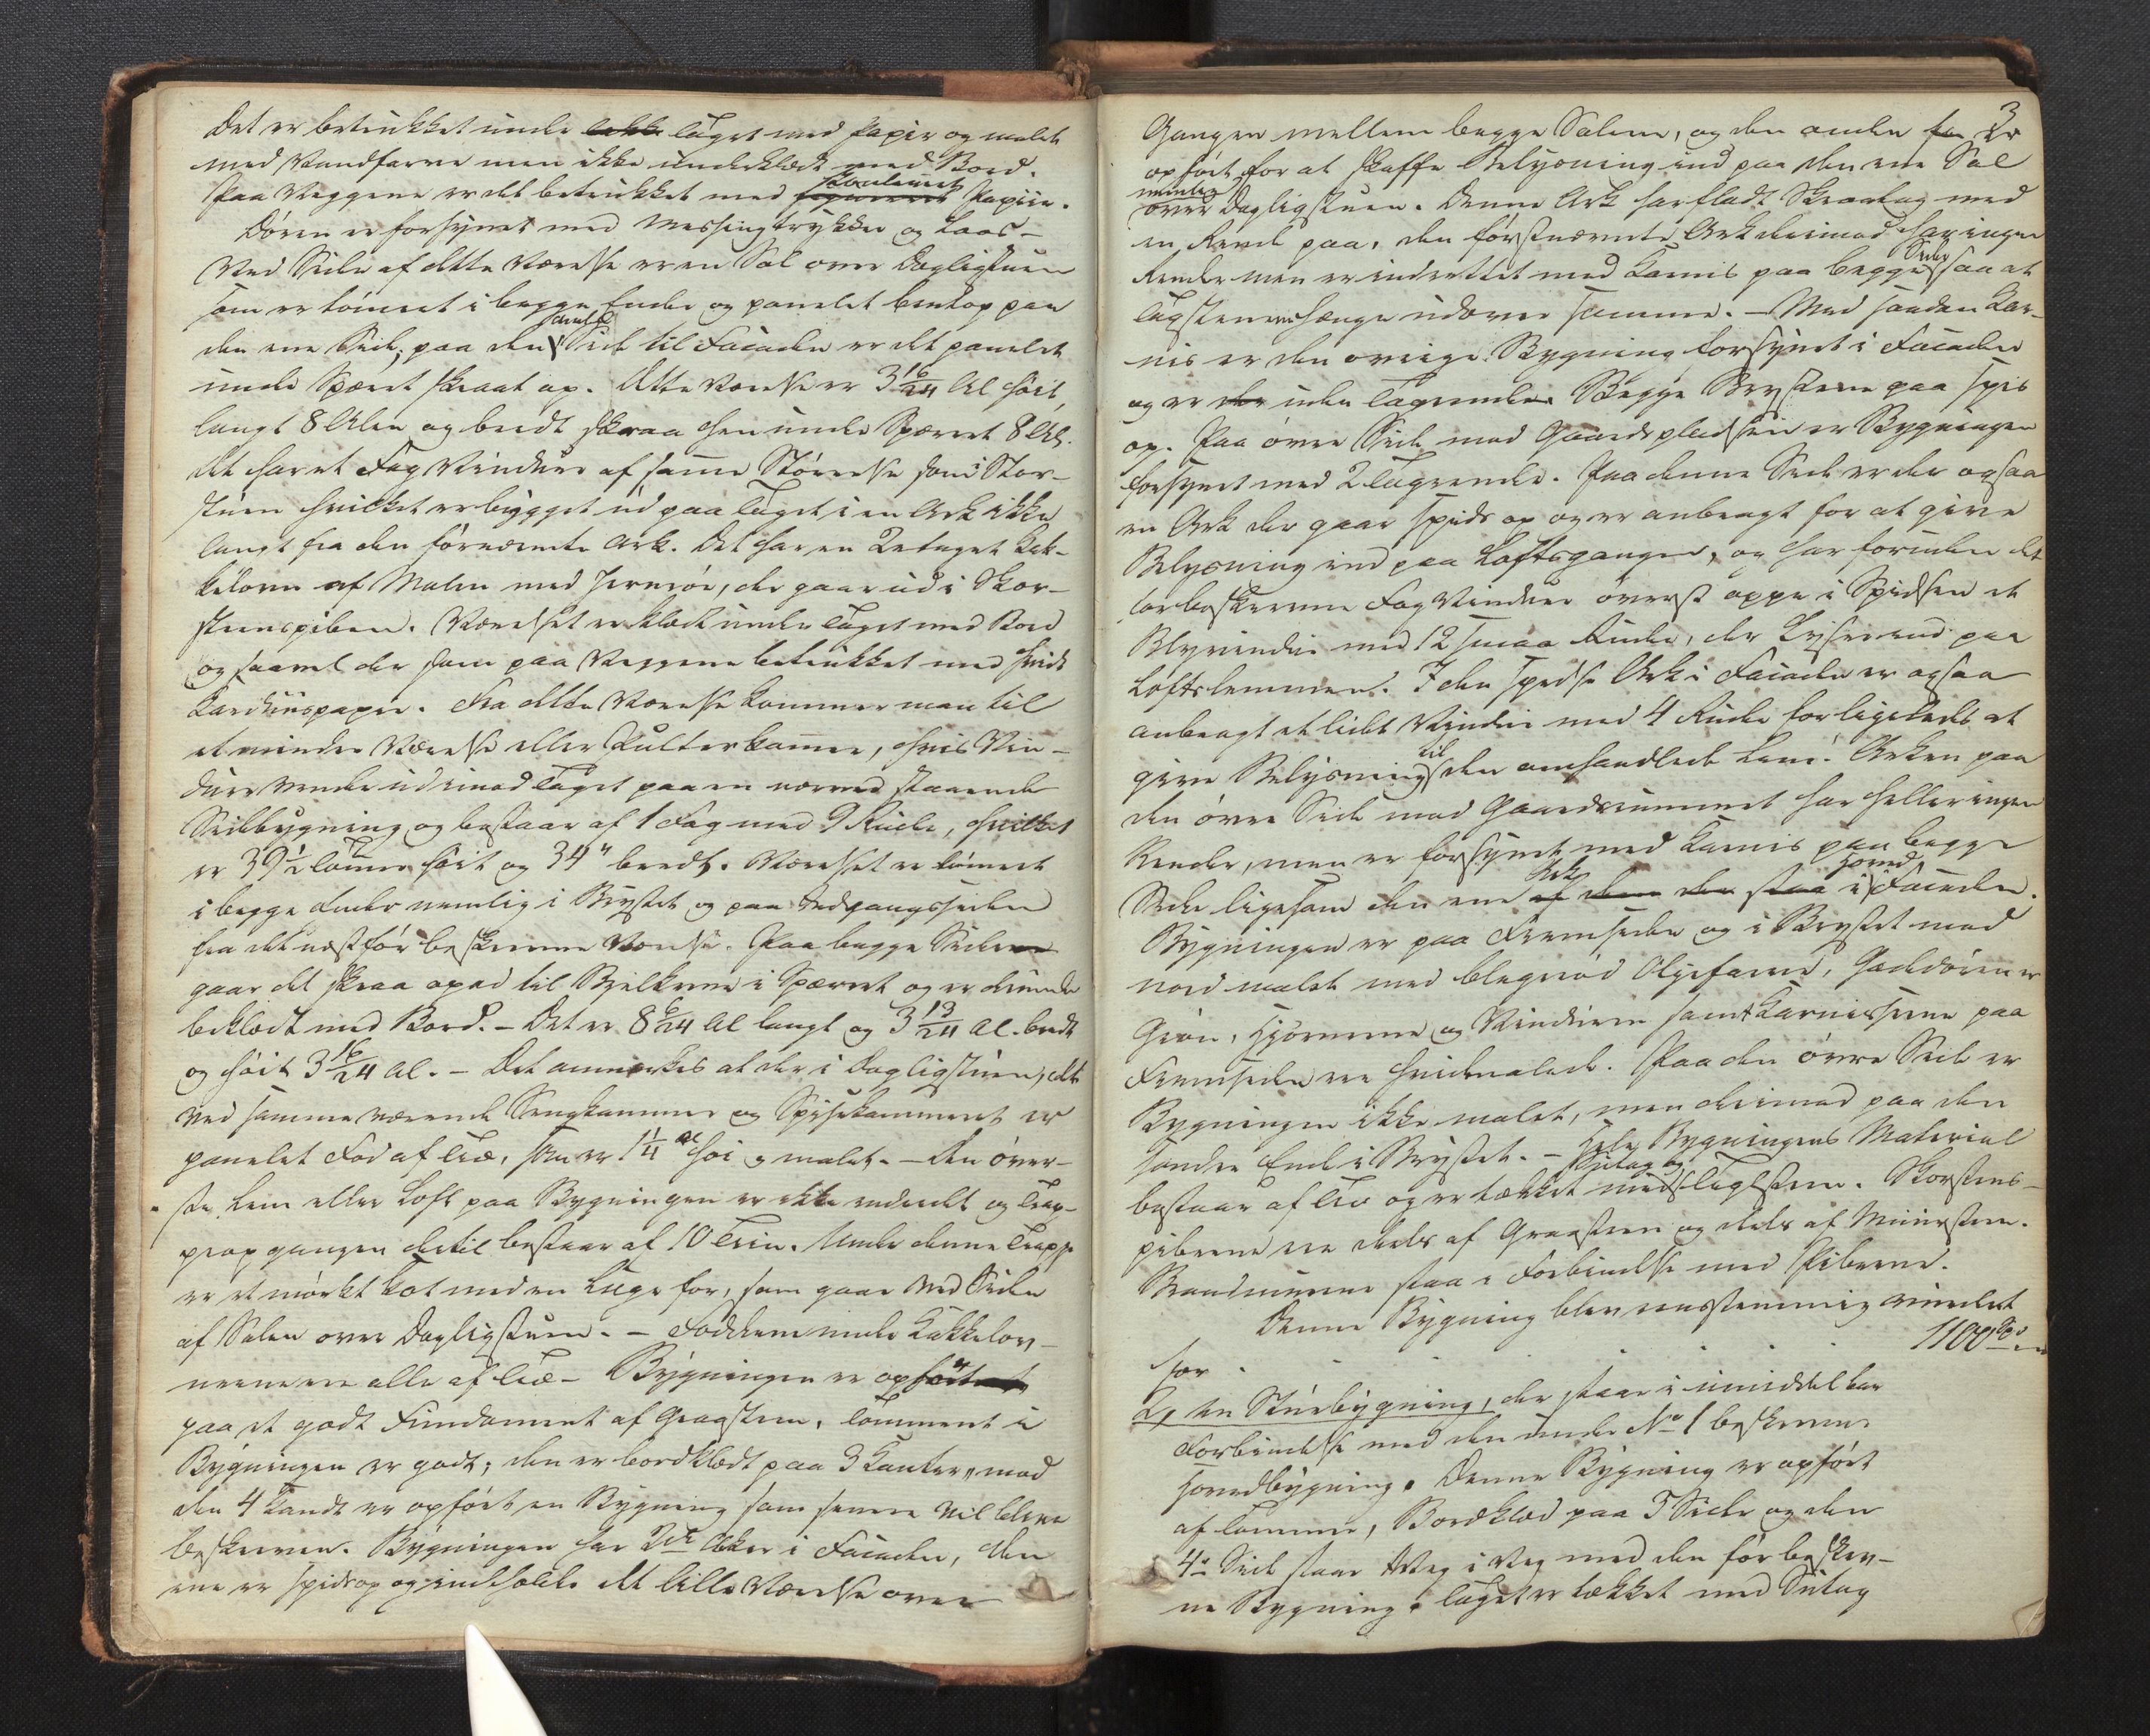 Det er betrukket under <s>lekk</s> Taget med Papir og malet
med Vandfarve men ikke underklædt med Bord.
Paa Veggene er det betrukket med couleurt <s>figureret</s> Papiir.
Døren er forsynet med Messingtrykker og Laas –
Ved Siden af dette Værelse er en Sal over Dagligstuen
som er tømret i begge Ender og panelet bent op paa
den ene Side; paa den anden Side til Facaden er det panelet
under Spæret skraat op. Dette Værelse er 3 16/24 Al høit,
langt 8 Alen og bredt skraa hen under Sperret 8 Al.
Det har et Fag Vinduer af samme Størrelse som i Stor-
stuen hvilket er bygget ud paa Taget i en Ark ikke
langt fra den førnævnte Ark. Det har en 2 etaget Kak-
kelovn af Malm med Jernrør, der gaar ud i Skor-
steenspiben. Værelset er klædt under Taget med Bord
og saavel der som paa Veggene betrukket med hvidt
Karduuspapir. Fra dette Værelse kommer man til
et mindre Værelse eller Pulterkammer, hvis Vin-
duer vende ud imod Taget paa en nærved staaende
Sidebygning og bestaar af 1 Fag med 9 Ruder, hvilket
er 39½ Tomme høit og 34" bredt. Værelset er tømret
i begge Ender nemlig i Brystet og paa Indgangssiden
fra det næstførbeskrevne Værelse. Paa begge Siderne
gaar det skraa opad til Bjelkerne i Spærret og er derunder
beklædt med Bord. – Det er 8 6/24 Al langt og 3 13/24 Al. bredt
og høit 3 16/24 Al. – Det anmærkes at der i Dagligstuen, det
ved samme værende Sengkammer og Spisekammeret er
panelet Fod af Træ, som er 1¼ Al høi og malet. – Den øver-
ste Lem eller Loft paa Bygningen er ikke inddeelt og Trap-
peopgangen dertil bestaar af 10 Trin. Under denne Trappe
er et mørkt Kot med en Luge for, som gaar ved Siden
af Salen over Dagligstuen. – Fødderne under Kakkelov-
nene ere alle af Træ – Bygningen er opført
paa et godt Fundament af Graasteen. Tømmeret i
Bygningen er godt; den er bordklædt paa 3 Kanter, mod
den 4 Kandt er opført en Bygning som senere vil blive
beskreven. Bygningen har 2de Arker i Facaden, den
ene er spids op og indeholder det lille Værelse over
3
Gangen mellem begge Salene, og den anden <s>for</s> er
opført for at skaffe Belysning ind paa den ene Sal
nemlig over Dagligstuen. Denne Ark har fladt Skraatag med
en Rende paa, den førstnævnte Ark derimod har ingen
Render men er indrettet med Karnis paa begge Sider saa at
Tagstenene hænge udover samme. – Med saadan Kar-
nis er den øvrige Bygning forsynet i Facaden
og er <s>der</s> uden Tagrender. Begge Brysterne paa spis
op. Paa øvre Side mod Gaardspladsen er Bygningen
forsynet med 2 Tagrender. Paa denne Side er der ogsaa
en Ark der gaar spids op og er anbragt for at give
Belysning ind paa Loftsgangen, og har foruden det
før beskrevne Fag Vinduer øverst oppe i Spidsen et
Blyvindue med 12 smaa Ruder, der lyser ind paa
Loftslemmen. I den spidse Ark i Facaden er ogsaa
anbragt et lidet Vindue med 4 Ruder for ligeledes at
give Belysning til den omhandlede Lem. Arken paa
den øvre Side mod Gaardsrummet har heller ingen
Render, men er forsynet med Karnis paa begge
Sider ligesom den ene Ark <s>af dem der staa</s> i Hoved Facaden.
Bygningen er paa Fremsiden og i Brystet mod
nord malet med blegrød Oljefarve, Gadedøren er
Grøn, Hjørnerne og Vinduerne samt Karnisserne paa
Fremsiden ere hvidmalede. Paa den øvre Side er
Bygningen ikke malet, men derimod paa den
søndre Ende i Brystet. – Hele Bygningens Material
bestaar af Træ og er tækket med Sutag og Taglsteen. Skorsteens-
piberne ere deels af Graasteen og deels af Muursteen.
Brandmurene staa i Forbindelse med Piberne.
Denne Bygning blev eenstemmig vurderet
for . . . . . . 1100 Spd
2, En Stuebygning, der staar i umiddelbar
Forbindelse med den under No 1 beskrevne
Hovedbygning. Denne Bygning er opført
af Tømmer, Bordklæd paa 3 Sider og den
4de Side staar Veg i Veg med den før beskrev-
ne Bygning. Taget er tækket med Sutag